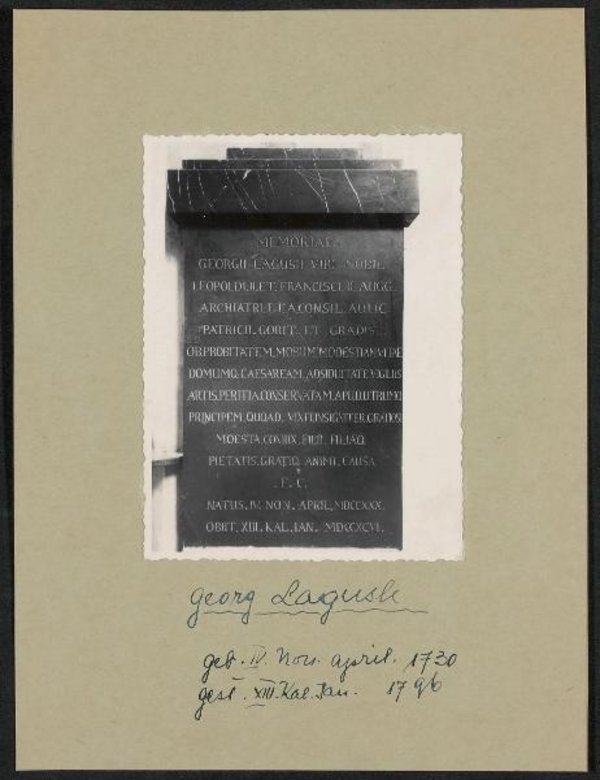 MEMORIAE
GEORGII LAGUSII VIRI NOBIL.
LEOPOLDI. II. ET. FRANCISCI. II. AUGG.
ARCHIATRI. ET. A. CONSIL. AULIC
PATRICII. GORIT. ET GRADIS
OB. PROBITATEM. MORUM. MODESTIAM
DOMUMQ. CAESAREAM. ADSIDUITATE. VIGILIIS
ARTIS. PERITIA. CONSERVATAM. APUD. UTRUMQ
PRINCIPEM. QUOAD. VIXIT. INSIGNITER. GRATIOSI
MOESTA. CONIUX. FILII. FILIAQ.
PIETATIS. GRATIQ. ANIMI. CAUSA
F. C.
NATUS. IV. NON. APRIL. MDCCXXX.
OBIIT. XIII. KAL. IAN. MDCCXCVI.
georg Lagush
geb. IV. Non. april. 1730
gest. XIII. Kal. Jan. 1796